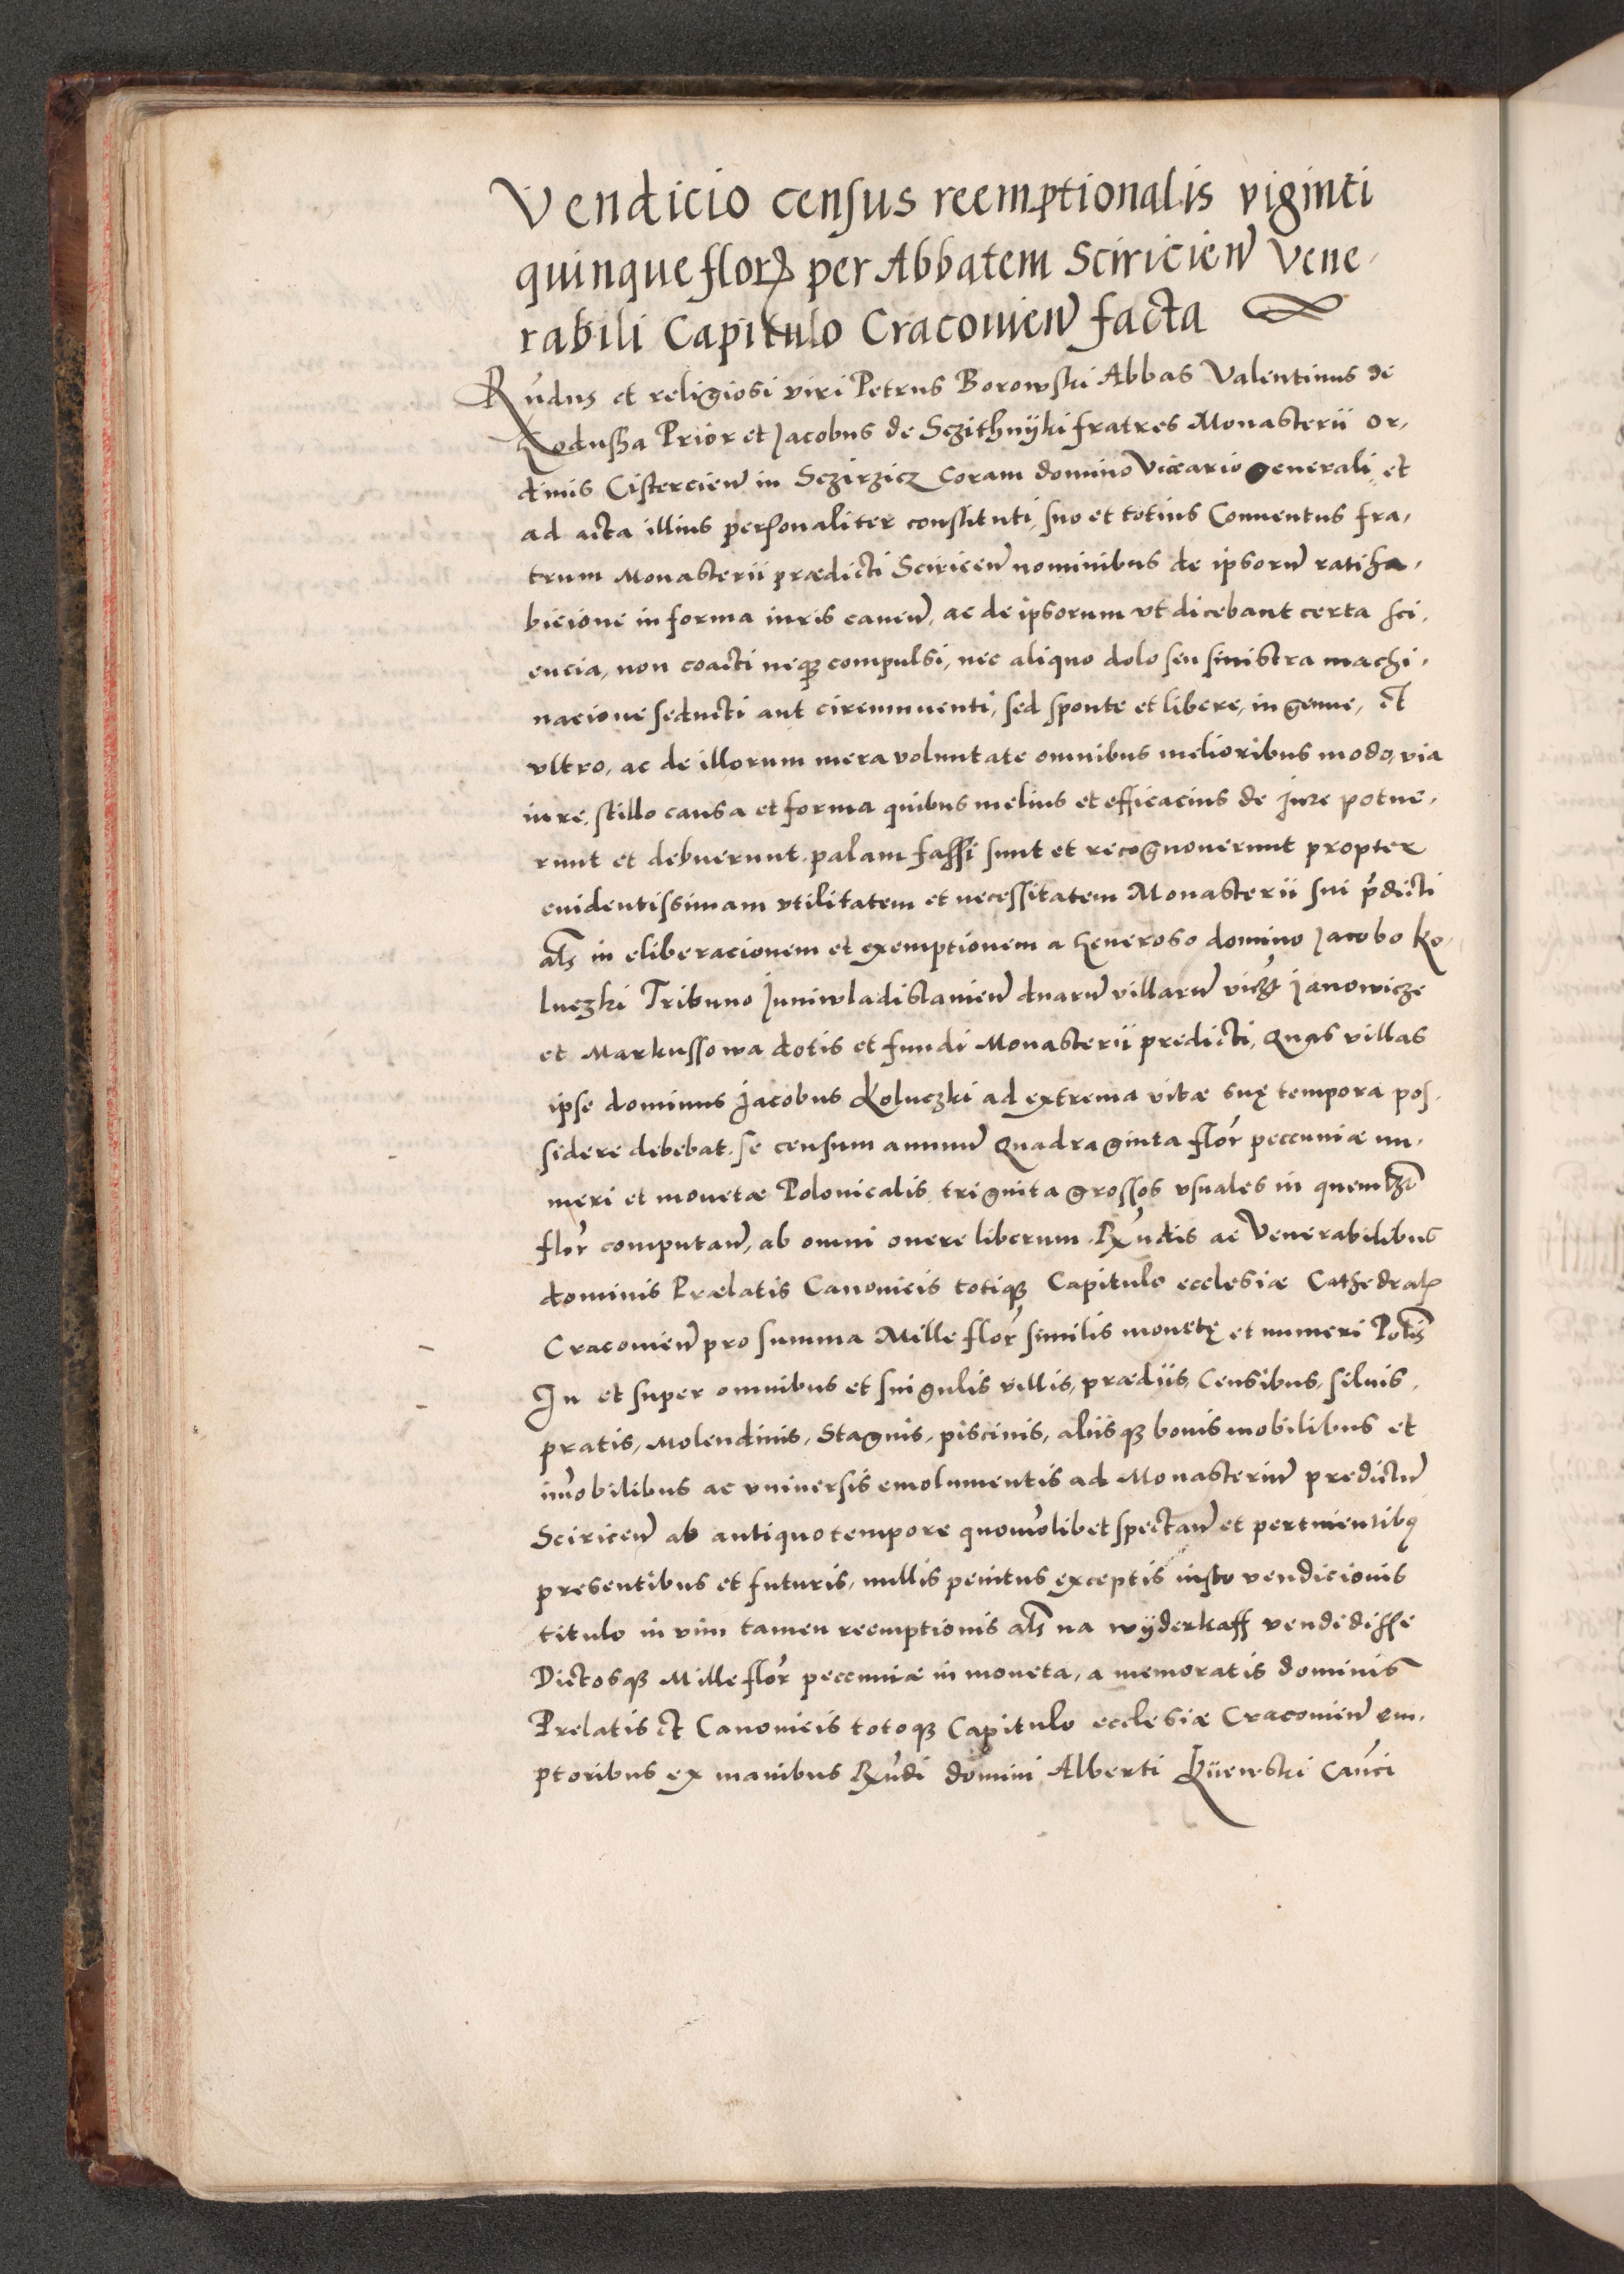 Vendicio census reemptionalis viginti
quinque florꝝ per Abbatem Sciricien̄ Vene-
rabili Capitulo Cracouien̄ facta
Rn̄dus et religiosi viri Petrus Borowski Abbas Valentinus de
Prior et Jacobus de Sczithnÿki fratres Monasterii or-
dinis Cistercien̄ in Sczirzicz Coram domino Vicario generali, et
ad acta illius personaliter constituti, suo et totius Conuentus fra-
trum Monasterii prædicti Sciricen̄ nominibus de ipsorū ratiha-
bicione in forma iuris cauen̄, ac de ipsorum vt dicebant certa sci-
encia, non coacti neqꝫ compulsi, nec aliquo dolo seu sinistra machi-
nacione seducti aut circumuenti, sed sponte et libere, ingenue, et
vltro, ac de illorum mera voluntate omnibus melioribus modo, via
iure, stillo causa et forma quibus melius et efficacius de Jure potue-
runt et debuerunt palam fassi sunt et recognouerunt propter
euidentissimam vtilitatem et necessitatem Monasterii sui p̄dicti
als in eliberacionem et exemptionem a Generoso domino Jacobo Ko-
luczki Tribuno Juniwladislauien̄ duarū villarū viczt Janowicze
et Markussowa dotis et fundi Monasterii predicti, Quas villas
ipse dominus Jacobus Koluczki ad extrema vitæ suę tempora pos-
sidere debebat. se censum annuū Quadraginta flor̄ peccuniæ nu-
meri et monetæ Polonicalis triginta grossos vsuales in quemlz̄
flor̄ computan̄, ab omni onere liberum Rn̄dis ac Venerabilibus
dominis Prælatis Canonicis totiqꝫ Capitulo ecclesiæ Cathedral̄
Cracouien̄ pro summa Mille flor̄ similis monetę et numeri Polis̄
In et super omnibus et singulis villis, prædiis, Censibus, siluis,
pratis, Molendinis, Stagnis, piscinis, aliisqꝫ bonis mobilibus et
im̄obilibus ac vniuersis emolumentis ad Monasteriū predictū
Sciricen̄ ab antiquo tempore quomōlibet spectan̄ et pertinentibꝯ
presentibus et futuris, nullis penitus exceptis iusto vendicionis
titulo in vim tamen reemptionis als na wÿderkaff vendidisse
Dictosqꝫ Mille flor̄ peccuniæ in moneta, a memoratis dominis
Prelatis et Canonicis totoqꝫ Capitulo ecclesiæ Cracouien̄ em-
ptoribus ex manibus Rn̄di domini Alberti Kÿewski Can̄ci